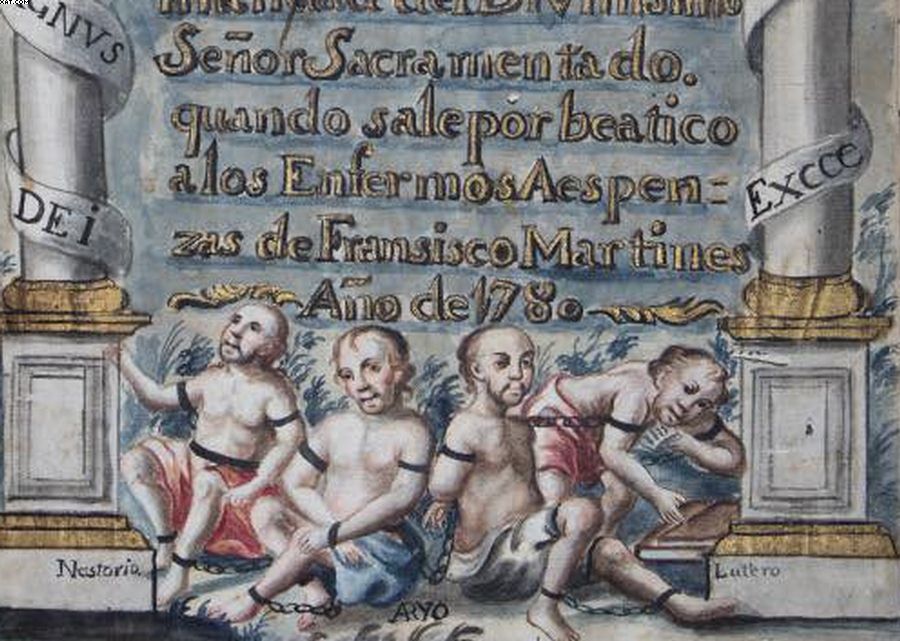 GNVS
Señor Sacramentado.
quando sale pòr beatico
a los Enfermòs Aespen=
zas de Fransisco Martines
Año de 1780
DEi
EXCCE
Nestorio
ARYO
Lutero